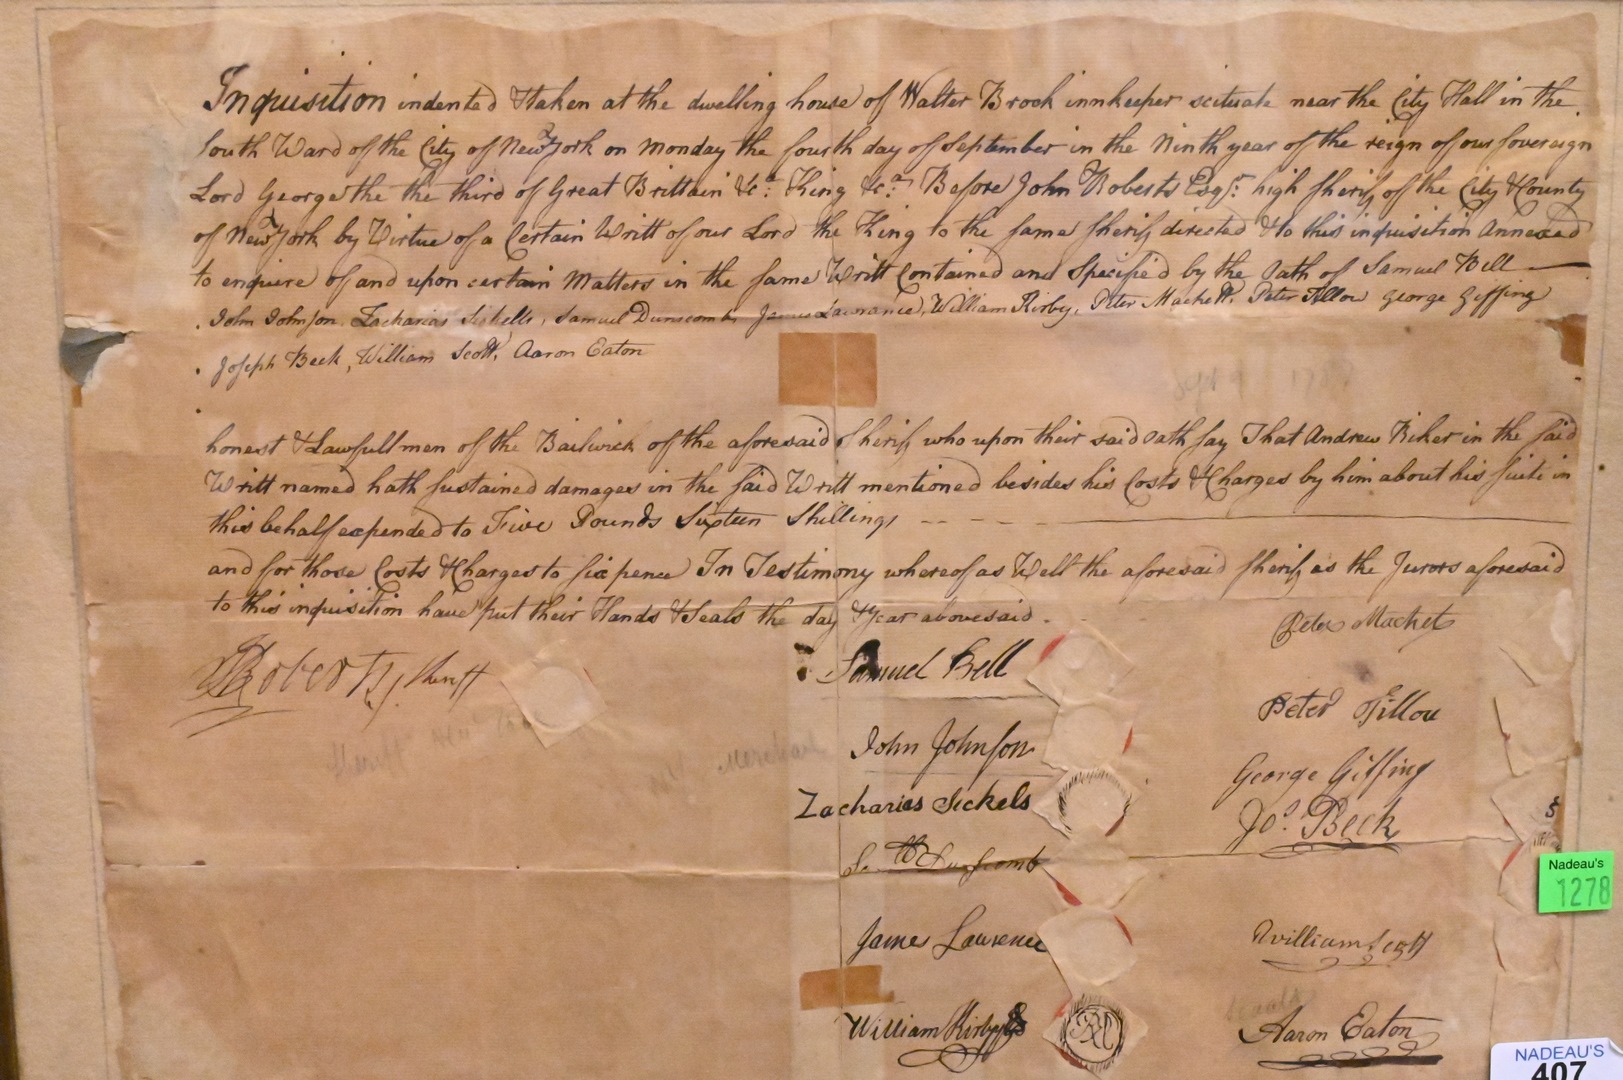 Inquisition indented & taken at the dwelling house of Walter Brook innkeeper scituate near the City Hall in the
South Ward of the City of New York on Monday the fourth day of September in the Ninth year of the reign of our Sovereign
Lord George the the third of Great Brittain &c.a King &c.a Before John Roberts Esq.r high Sherif of the City & County
of New York by Virtue of a Certain Writt of our Lord the King to the same Sherif directed & to this inquisition Annexed
to enquire of and upon certain Matters in the same Writt Contained and Specified by the Oath of Samuel Bell
John Johnson, Zacharias Sickells, Samuel Dunscomb, James Lawrance, William Kirby, Peter Mackett, Peter Fillou George Giffing
Joseph Beck, William Scott, Aaron Eaton
Sept
honest & Lawfull men of the Bailwick of the aforesaid Sherif who upon their said Oath say That Andrew Riker in the said
Writt named hath sustained damages in the said Writt mentioned besides his Costs & Charges by him about his suite in
this behalf expended to Five Pounds Sixteen Shillings
and for those Costs & Charges to six pence In Testimony whereof as Well the aforesaid Sherif as the Jurors aforesaid
to this inquisition have put their Hands & Seals the day & Year abovesaid.
J Roberts, Sheriff
Sheriff New
Samuel Bell
John Johnson
Zacharias Sickels
Dunscomb
James Lawrence
William Kirby
Peter Macket
Peter Fillou
George Giffing
Jos. Beck
William Scott
Aaron Eaton
Nadeau's
1278
NADEAU'S
407